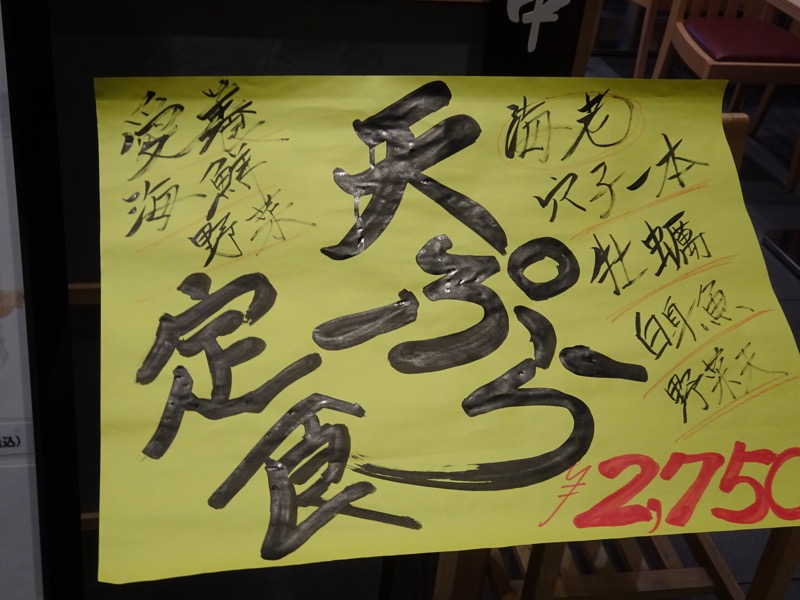 中
海老
穴子一本
牡蠣
白身魚
野菜天
天ぷら
定食
海鮮
野菜
¥2,750
込)